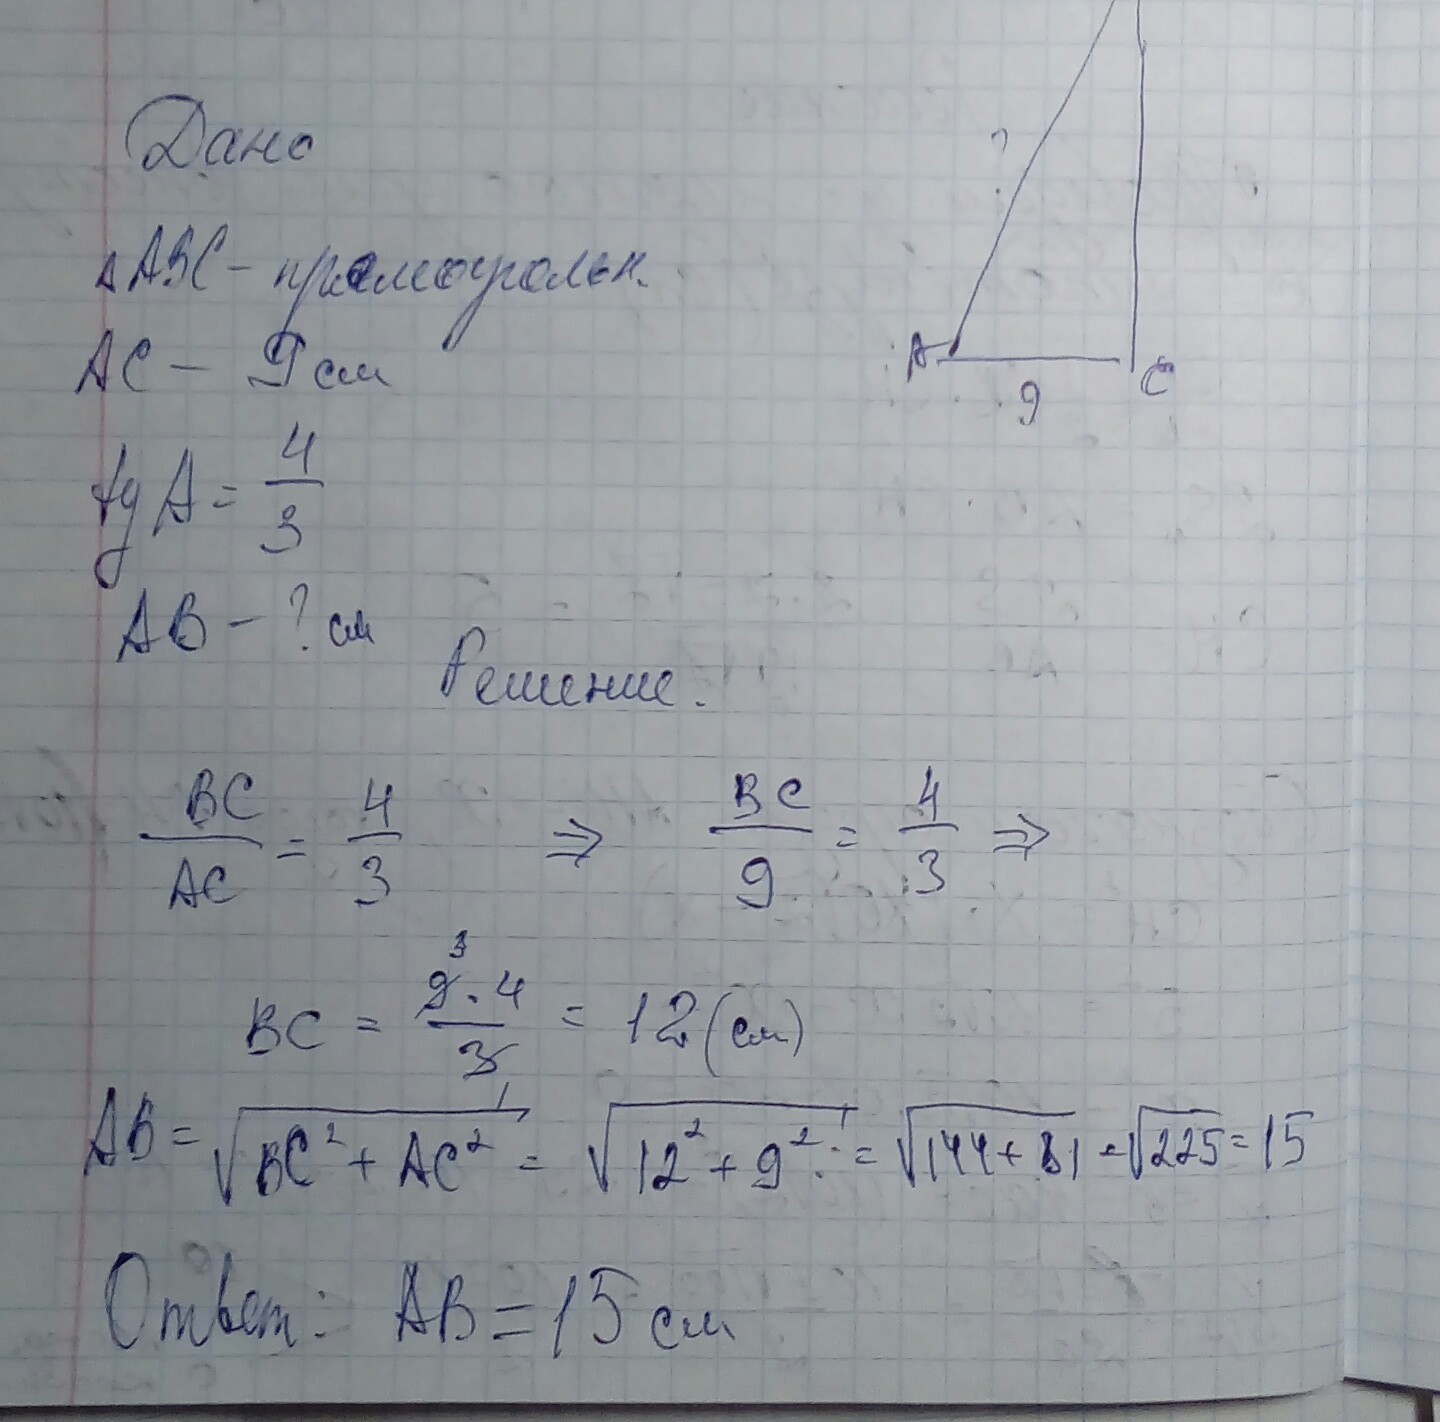 Дано
?
△ABC - прямоугольн.
AC - 9 см
A
9
C
tg A = 4/3
AB - ? см
Решение.
BC/AC = 4/3 ⇒ BC/9 = 4/3 ⇒
3
BC = 9·4/3 = 12 (см)
1
AB = √BC² + AC² = √12² + 9² = √144 + 81 = √225 = 15
Ответ: AB = 15 см